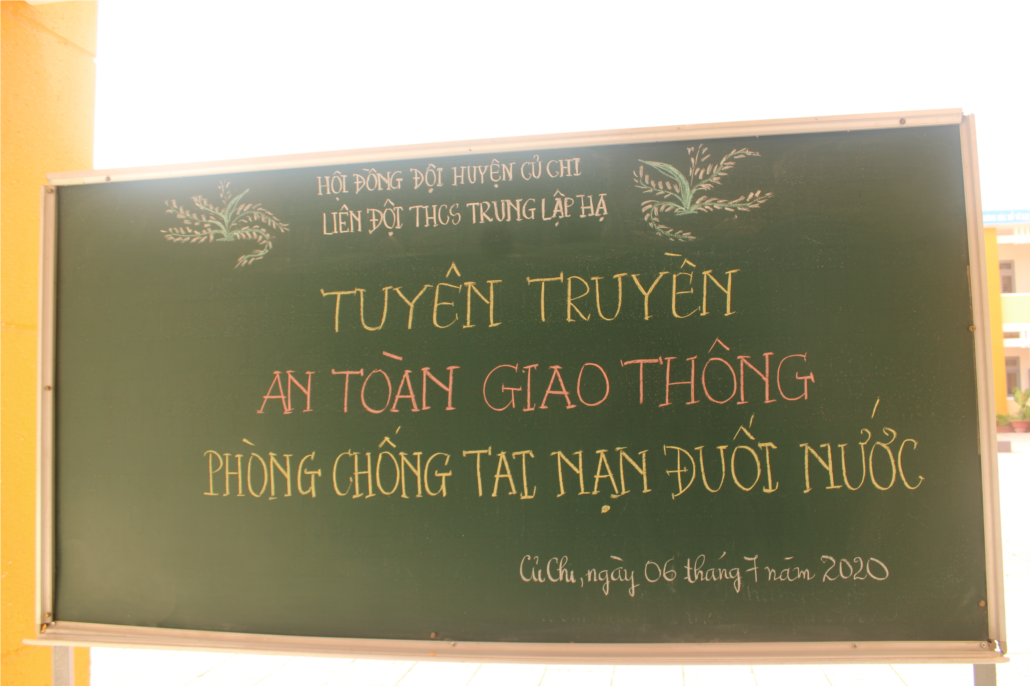 HỘI ĐỒNG ĐỘI HUYỆN CỦ CHI
LIÊN ĐỘI THCS TRUNG LẬP HẠ
TUYÊN TRUYỀN
AN TOÀN GIAO THÔNG
PHÒNG CHỐNG TAI NẠN ĐUỐI NƯỚC
Củ Chi, ngày 06 tháng 7 năm 2020